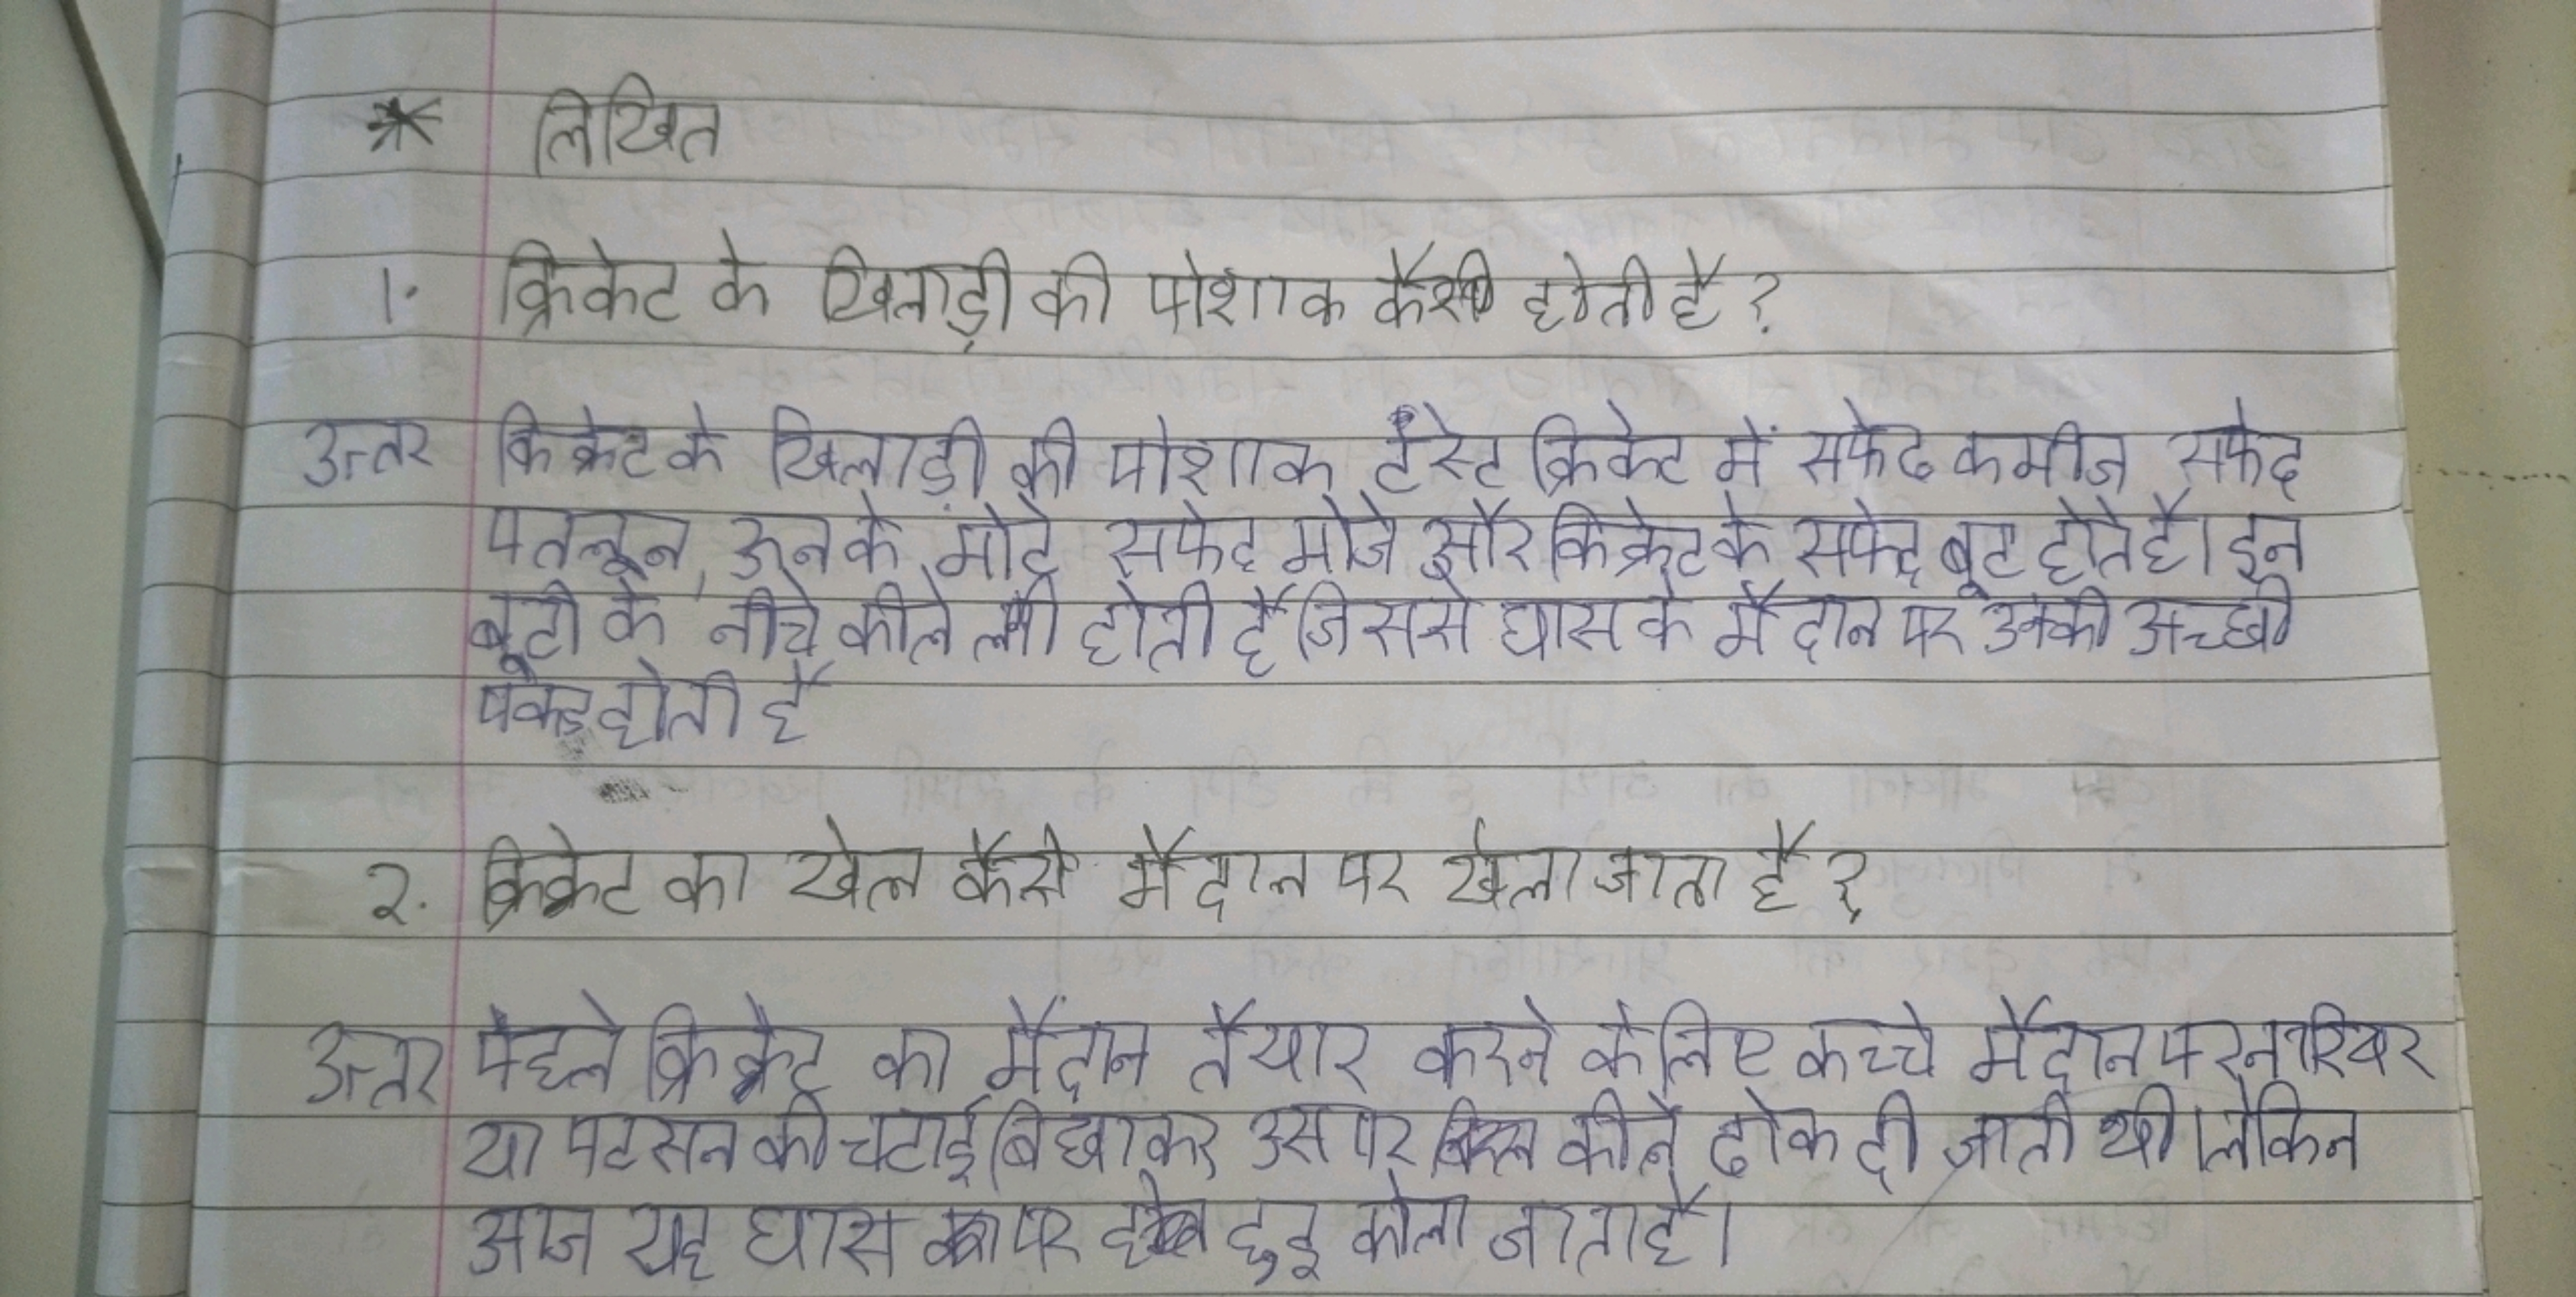 * लिखित
1. क्रिकेट के खिलाड़ी की पोशाक कैसी होती है?
उत्तर किक्रेट के खिलाड़ी की पोशाक टेस्ट क्रिकेट में सफेद कमीज सफेद
पतलून, ऊन के मोटे सफेद मोजे और किक्रेट के सफेद बूट होते है। इन
बूटो के नीचे कीले होती है जिससे घास के मैदान पर उनकी अच्छी
पकड होती है
२. क्रिकेट का खेल कैसे मैदान पर खेला जाता है?
उत्तर पहले क्रिक्रेट का मैदान तैयार करने के लिए कच्चे मैदान पर नारियर
या पटसन की चटाई बिछाकर उस पर कीलें ठोक दी जाती थी। लेकिन
आज यह घास पर जाता है।